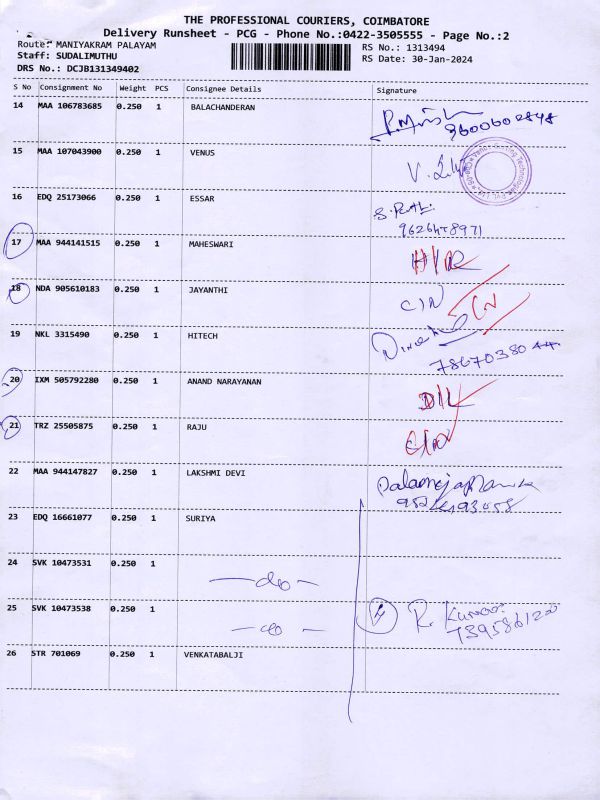 THE PROFESSIONAL COURIERS, COIMBATORE
Delivery Runsheet - PCG - Phone No.:0422-3505555 - Page No.:2
Route: MANIYAKRAM PALAYAM
RS No.: 1313494
Staff: SUDALIMUTHU
RS Date: 30-Jan-2024
DRS No.: DCJB131349402
S No Consignment No Weight PCS Consignee Details Signature
14 MAA 106783685 0.250 1 BALACHANDERAN
15 MAA 107043900 0.250 1 VENUS V.
16 EDQ 25173066 0.250 1 ESSAR
17 MAA 944141515 0.250 1 MAHESWARI
18 NDA 905610183 0.250 1 JAYANTHI
19 NKL 3315490 0.250 1 HITECH
20 IXM 505792280 0.250 1 ANAND NARAYANAN
D/L
21 TRZ 25505875 0.250 1 RAJU
22 MAA 944147827 0.250 1 LAKSHMI DEVI
23 EDQ 16661077 0.250 1 SURIYA
24 SVK 10473531 0.250 1
— do —
25 SVK 10473538 0.250 1 R. Kumar
— do —
26 STR 701069 0.250 1 VENKATABALJI